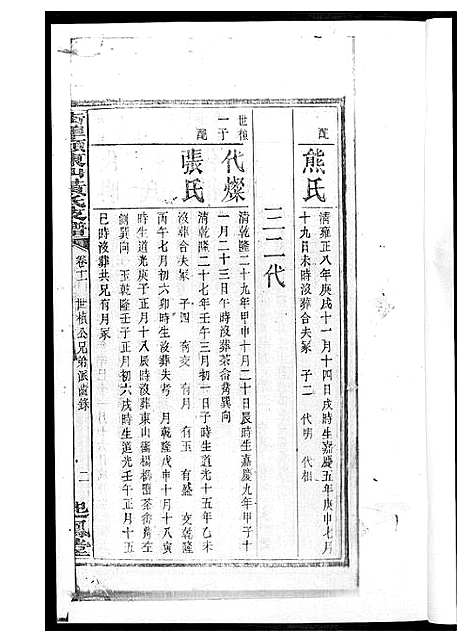 配
熊氏
清雍正八年庚戌十一月十四日戌時生嘉慶五年庚申七月
十九日未時沒葬合夫冢 子二 代明 代相
三二代
世禎
一子
代燦
清乾隆二十九年甲申十月二十日辰時生嘉慶九年甲子十
一月二十三日午時沒葬茶畬巽向
配
張氏
清乾隆二十七年壬午三月初一日子時生道光十五年乙未
沒葬合夫冢 子四 有亥 有月 有玉 有盛 亥乾隆
丙午七月初六卯時生沒葬失考 月乾隆戊申十月十八寅
時生道光庚子正月十八辰時沒葬東山
巽向 玉乾隆壬子正月初六戌時生道光壬午正月十五
巳時沒葬共兄有月冢
黃氏支譜
卷十二 世禎公兄弟派齒錄
二